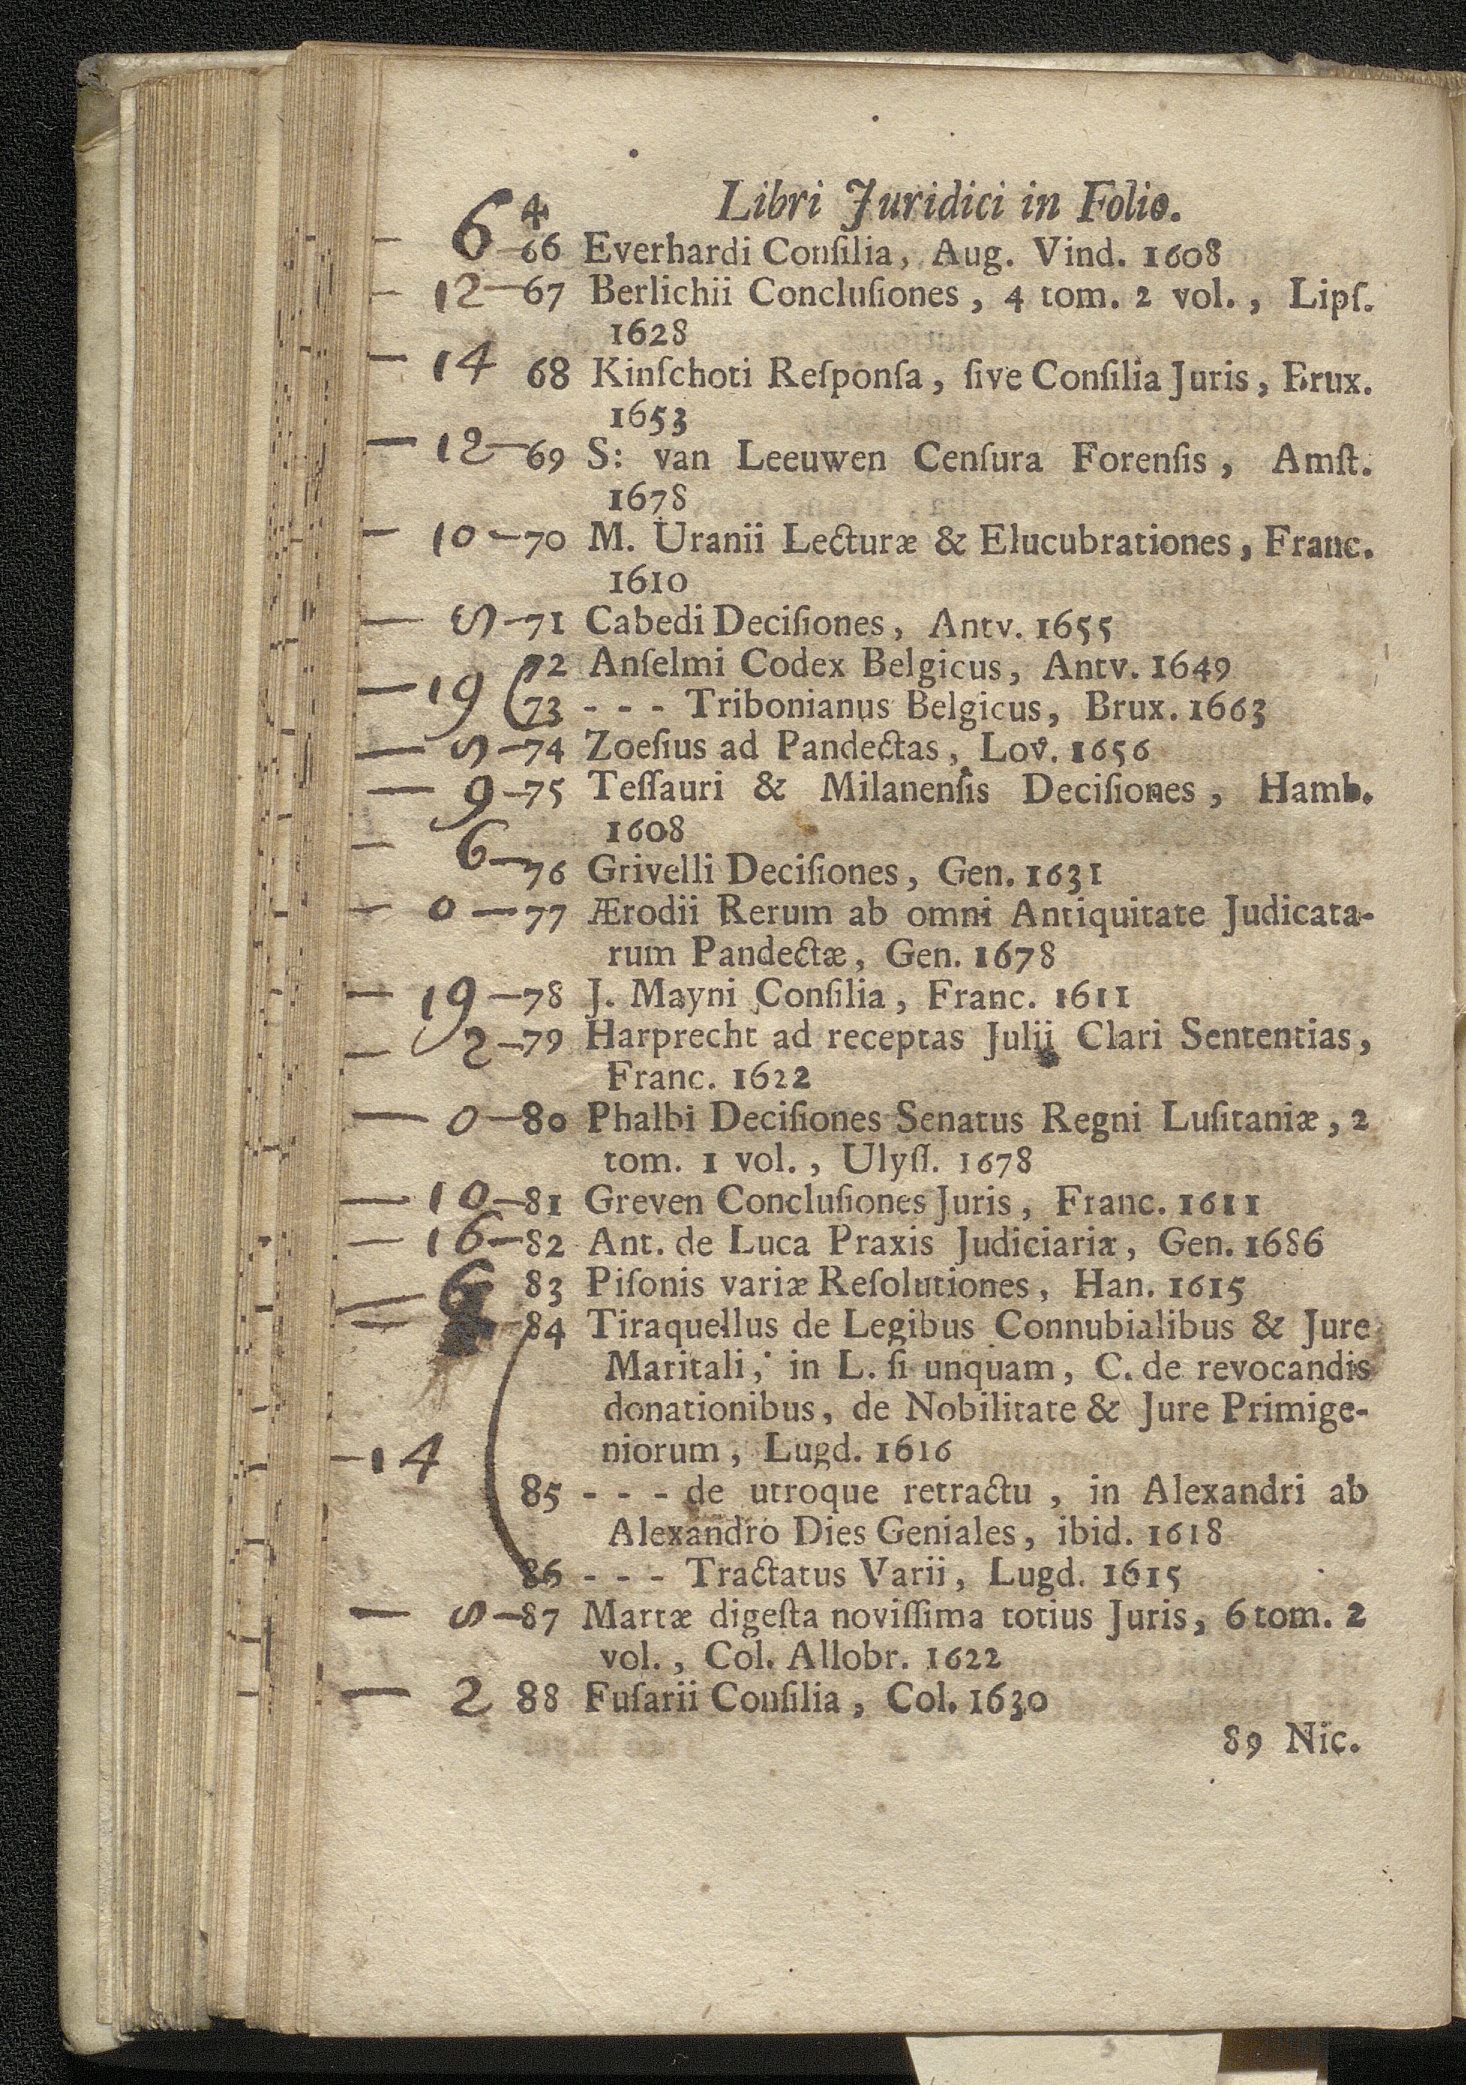 4 Libri Juridici in Folio.
6 -66 Everhardi Conſilia, Aug. Vind. 1608
- 12-67 Berlichii Concluſiones, 4 tom. 2 vol., Lipſ.
1628
- 14 68 Kinſchoti Reſponſa, ſive Conſilia Juris, Brux.
1653
- 12-69 S: van Leeuwen Cenſura Forenſis, Amſt.
1678
- 10-70 M. Uranii Lecturæ & Elucubrationes, Franc.
1610
-71 Cabedi Deciſiones, Antv. 1655
72 Anſelmi Codex Belgicus, Antv. 1649
- 19 73 - - - Tribonianus Belgicus, Brux. 1663
-74 Zoeſius ad Pandectas, Lov. 1656
- 9-75 Teſſauri & Milanenſis Deciſiones, Hamb.
1608
- 6-76 Grivelli Deciſiones, Gen. 1631
- 0-77 Ærodii Rerum ab omni Antiquitate Judicata-
rum Pandectæ, Gen. 1678
- 19-78 J. Mayni Conſilia, Franc. 1611
- 2-79 Harprecht ad receptas Julii Clari Sententias,
Franc. 1622
- 0-80 Phalbi Deciſiones Senatus Regni Luſitaniæ, 2
tom. 1 vol., Ulyſſ. 1678
- 10-81 Greven Concluſiones Juris, Franc. 1611
- 16-82 Ant. de Luca Praxis Judiciaria, Gen. 1686
- 6 83 Piſonis variæ Reſolutiones, Han. 1615
84 Tiraquellus de Legibus Connubialibus & Jure
Maritali, in L. ſi unquam, C. de revocandis
donationibus, de Nobilitate & Jure Primige-
- 14 niorum, Lugd. 1616
85 - - - de utroque retractu, in Alexandri ab
Alexandro Dies Geniales, ibid. 1618
86 - - - Tractatus Varii, Lugd. 1615
-87 Martæ digeſta noviſſima totius Juris, 6 tom. 2
vol., Col. Allobr. 1622
- 2 88 Fuſarii Conſilia, Col. 1630
89 Nic.